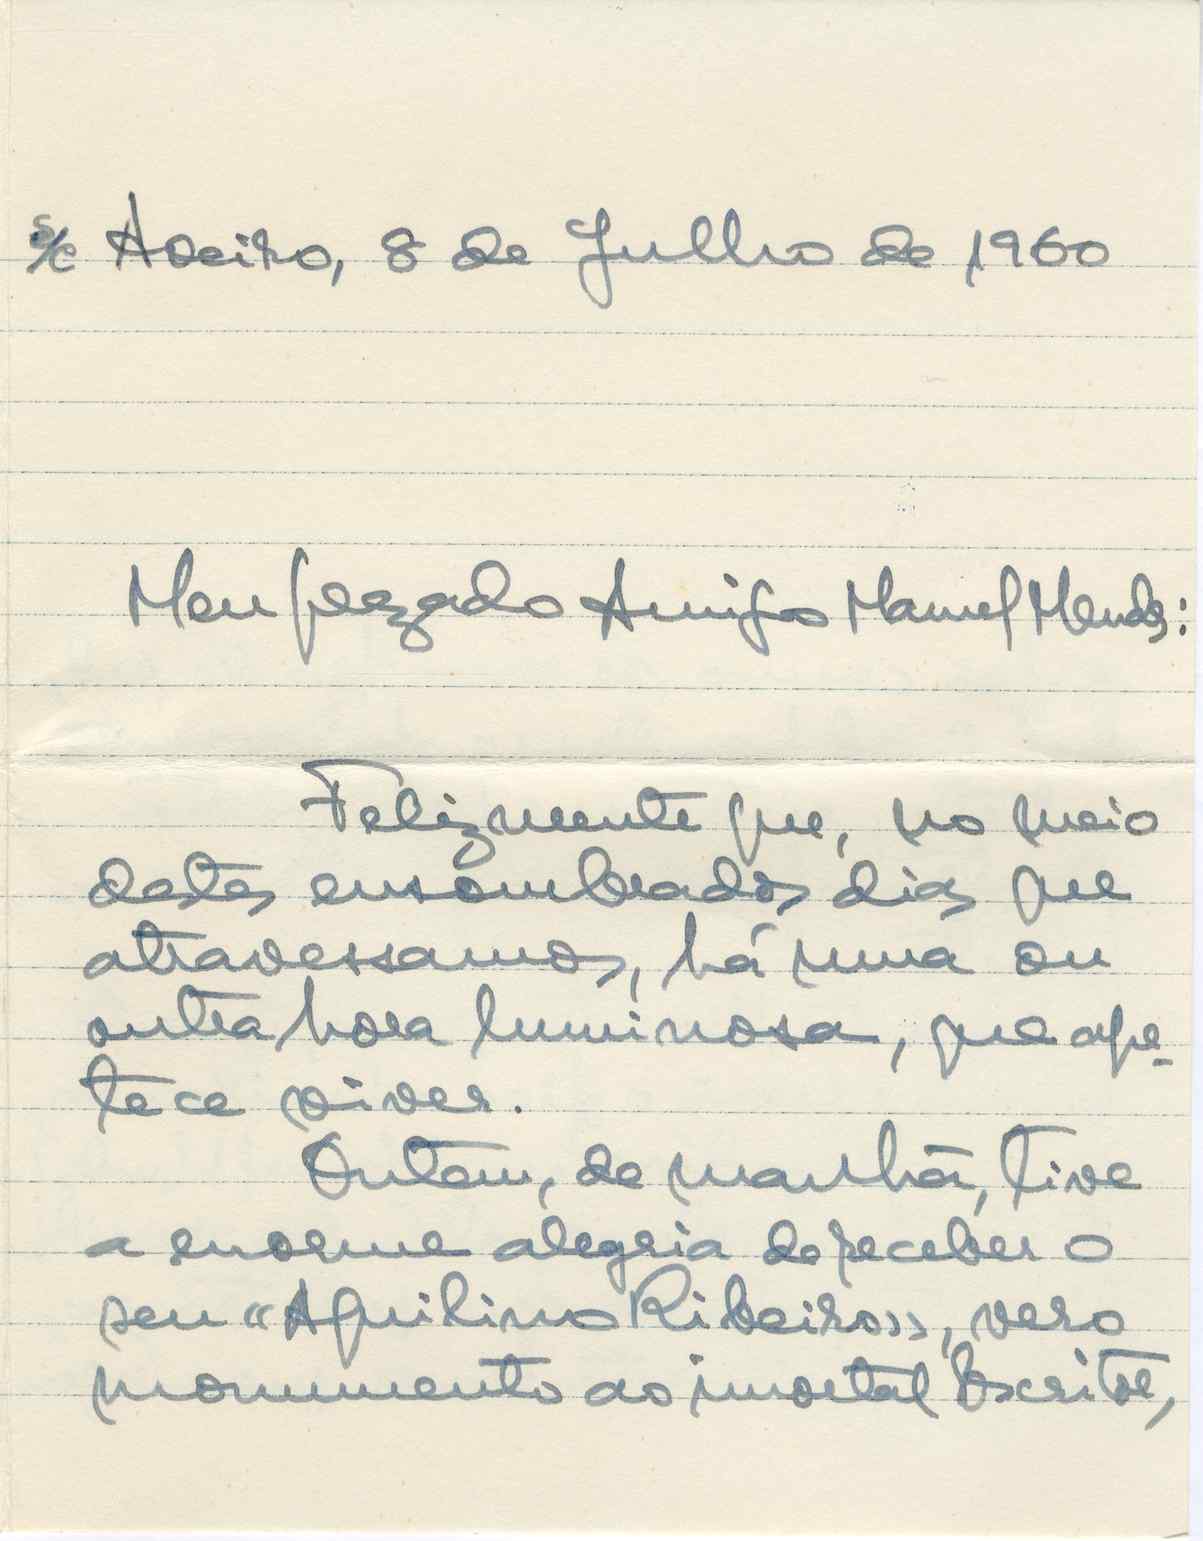 s/c Aveiro, 8 de Julho de 1960
Meu prezado Amigo Manuel Mendes:
Felizmente que, no meio
destes ensombrados dias que
atravessamos, há uma ou
outra hora luminosa, que ape-
tece viver.
Ontem, de manhã, tive
a enorme alegria de receber o
seu «Aquilino Ribeiro», vero
monumento ao imortal Escritor,